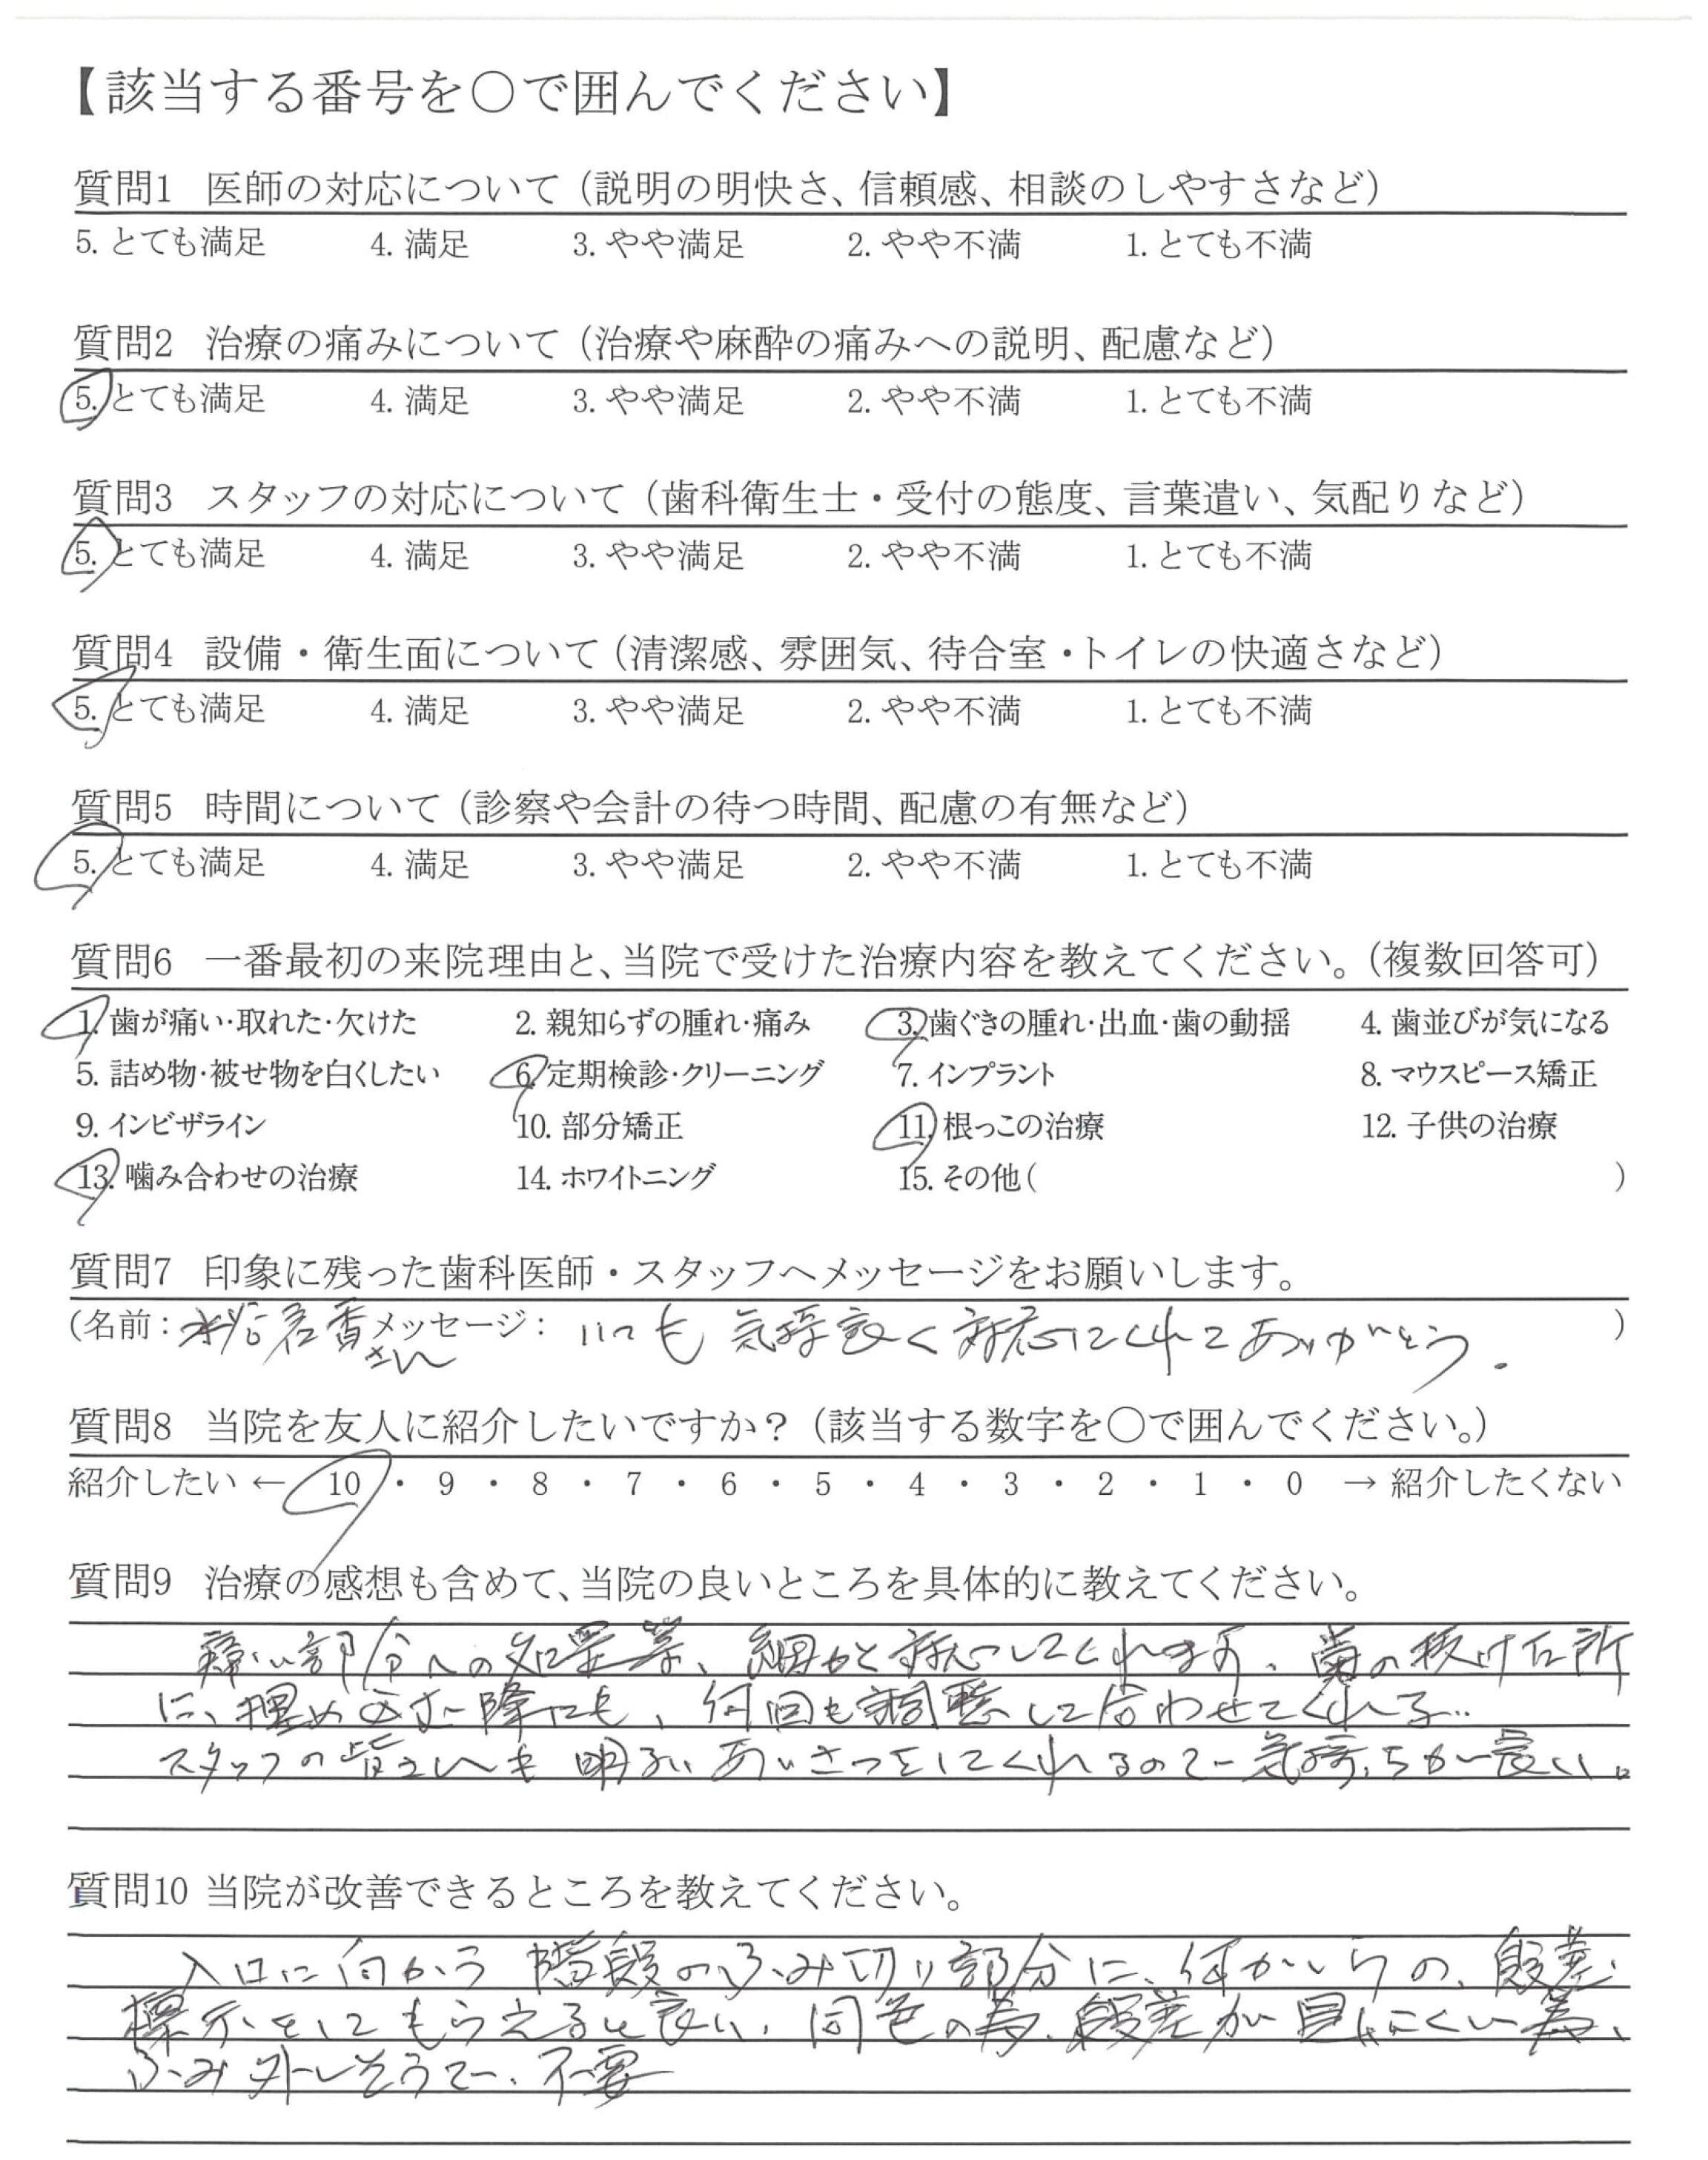 【該当する番号を〇で囲んでください】
質問1 医師の対応について（説明の明快さ、信頼感、相談のしやすさなど）
5. とても満足 4. 満足 3. やや満足 2. やや不満 1. とても不満
質問2 治療の痛みについて（治療や麻酔の痛みへの説明、配慮など）
5. とても満足 4. 満足 3. やや満足 2. やや不満 1. とても不満
質問3 スタッフの対応について（歯科衛生士・受付の態度、言葉遣い、気配りなど）
5. とても満足 4. 満足 3. やや満足 2. やや不満 1. とても不満
質問4 設備・衛生面について（清潔感、雰囲気、待合室・トイレの快適さなど）
5. とても満足 4. 満足 3. やや満足 2. やや不満 1. とても不満
質問5 時間について（診察や会計の待つ時間、配慮の有無など）
5. とても満足 4. 満足 3. やや満足 2. やや不満 1. とても不満
質問6 一番最初の来院理由と、当院で受けた治療内容を教えてください。（複数回答可）
1. 歯が痛い・取れた・欠けた 2. 親知らずの腫れ・痛み 3. 歯ぐきの腫れ・出血・歯の動揺 4. 歯並びが気になる
5. 詰め物・被せ物を白くしたい 6. 定期検診・クリーニング 7. インプラント 8. マウスピース矯正
9. インビザライン 10. 部分矯正 11. 根っこの治療 12. 子供の治療
13. 噛み合わせの治療 14. ホワイトニング 15. その他（ ）
質問7 印象に残った歯科医師・スタッフへメッセージをお願いします。
（名前：香さん メッセージ： いつも気持良く対応してくれてありがとう。 ）
質問8 当院を友人に紹介したいですか？（該当する数字を〇で囲んでください。）
紹介したい ← 10 ・ 9 ・ 8 ・ 7 ・ 6 ・ 5 ・ 4 ・ 3 ・ 2 ・ 1 ・ 0 → 紹介したくない
質問9 治療の感想も含めて、当院の良いところを具体的に教えてください。
痛い部分への処置等、細かく対応してくれます。歯の抜けた所
に、埋め込む際にも、何回も調整して合わせてくれる…
スタッフの皆さんも明るいあいさつをしてくれるので気持ちが良い。
質問10 当院が改善できるところを教えてください。
入口に向かう階段のふみ切り部分に、何かしらの、段差
標示をしてもらえると良い。同色の為、段差が見にくい為、
ふみ外しそうで。